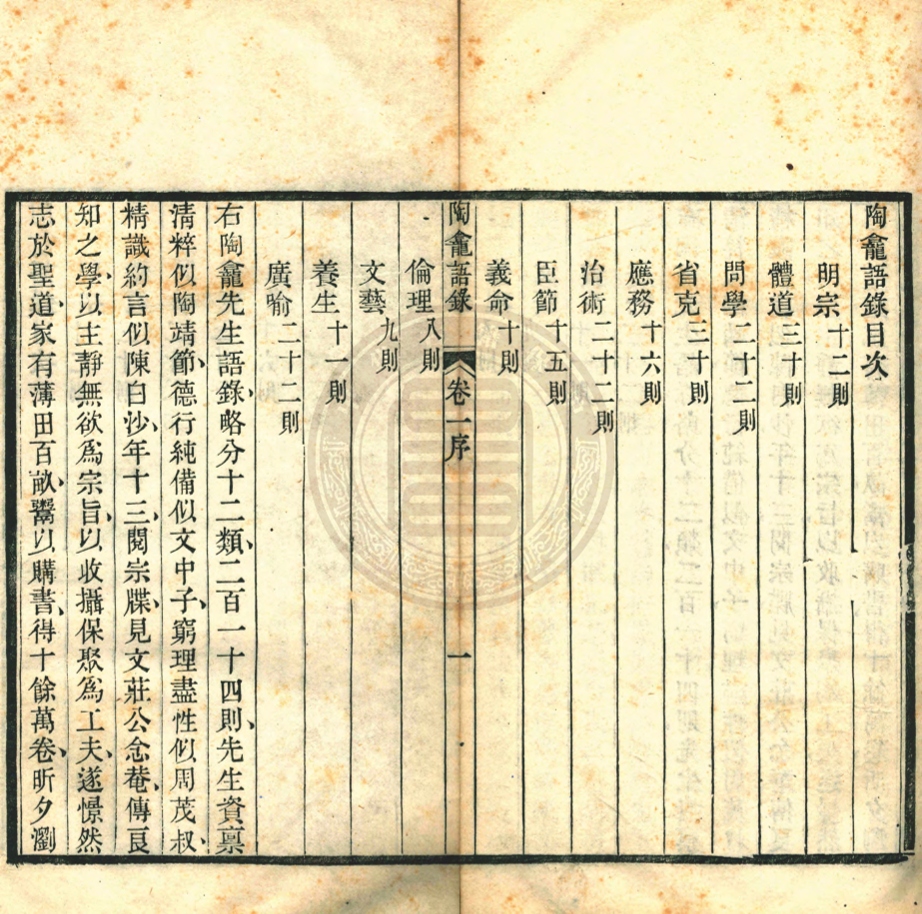 陶龕語錄目次
明宗十二則
體道三十則
問學二十二則
省克三十則
應務十六則
治術二十二則
臣節十五則
義命十則
陶龕語錄 卷一序 一
倫理八則
文藝九則
養生十一則
廣喻二十二則
右陶龕先生語錄、略分十二類、二百一十四則、先生資禀
清粹似陶靖節、德行純備似文中子、窮理盡性似周茂叔、
精識約言似陳白沙、年十三、閱宗牒、見文莊公念菴、傳良
知之學、以主靜無欲爲宗旨、以收攝保聚爲工夫、遂憬然
志於聖道、家有薄田百畝、鬻以購書、得十餘萬卷、昕夕瀏